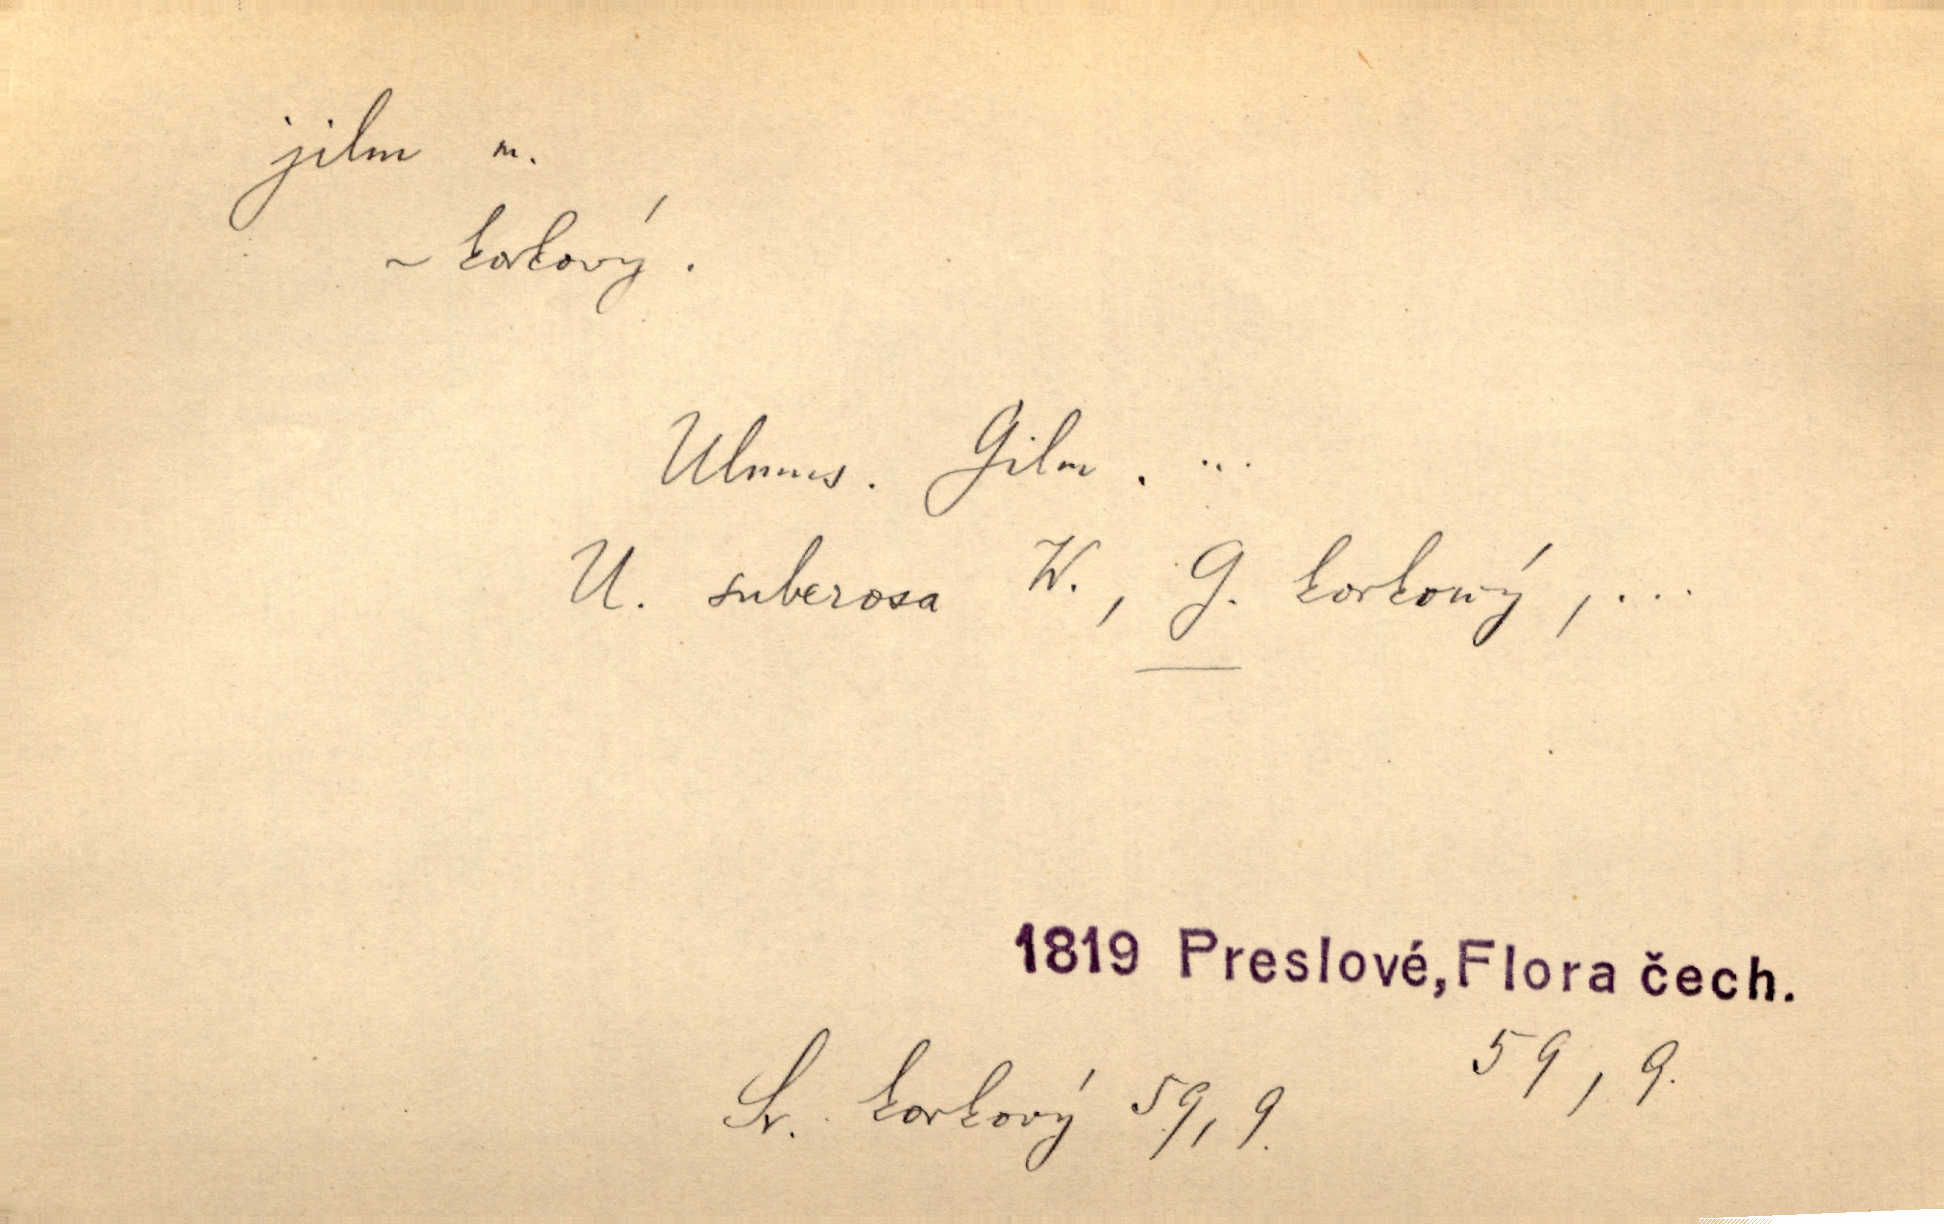 jilm m.
~ korkový.
Ulmus. Gilm. ...
U. suberosa W., G. korkowý, ...
1819 Preslové, Flora čech.
59, 9.
Sr. korkový 59, 9.